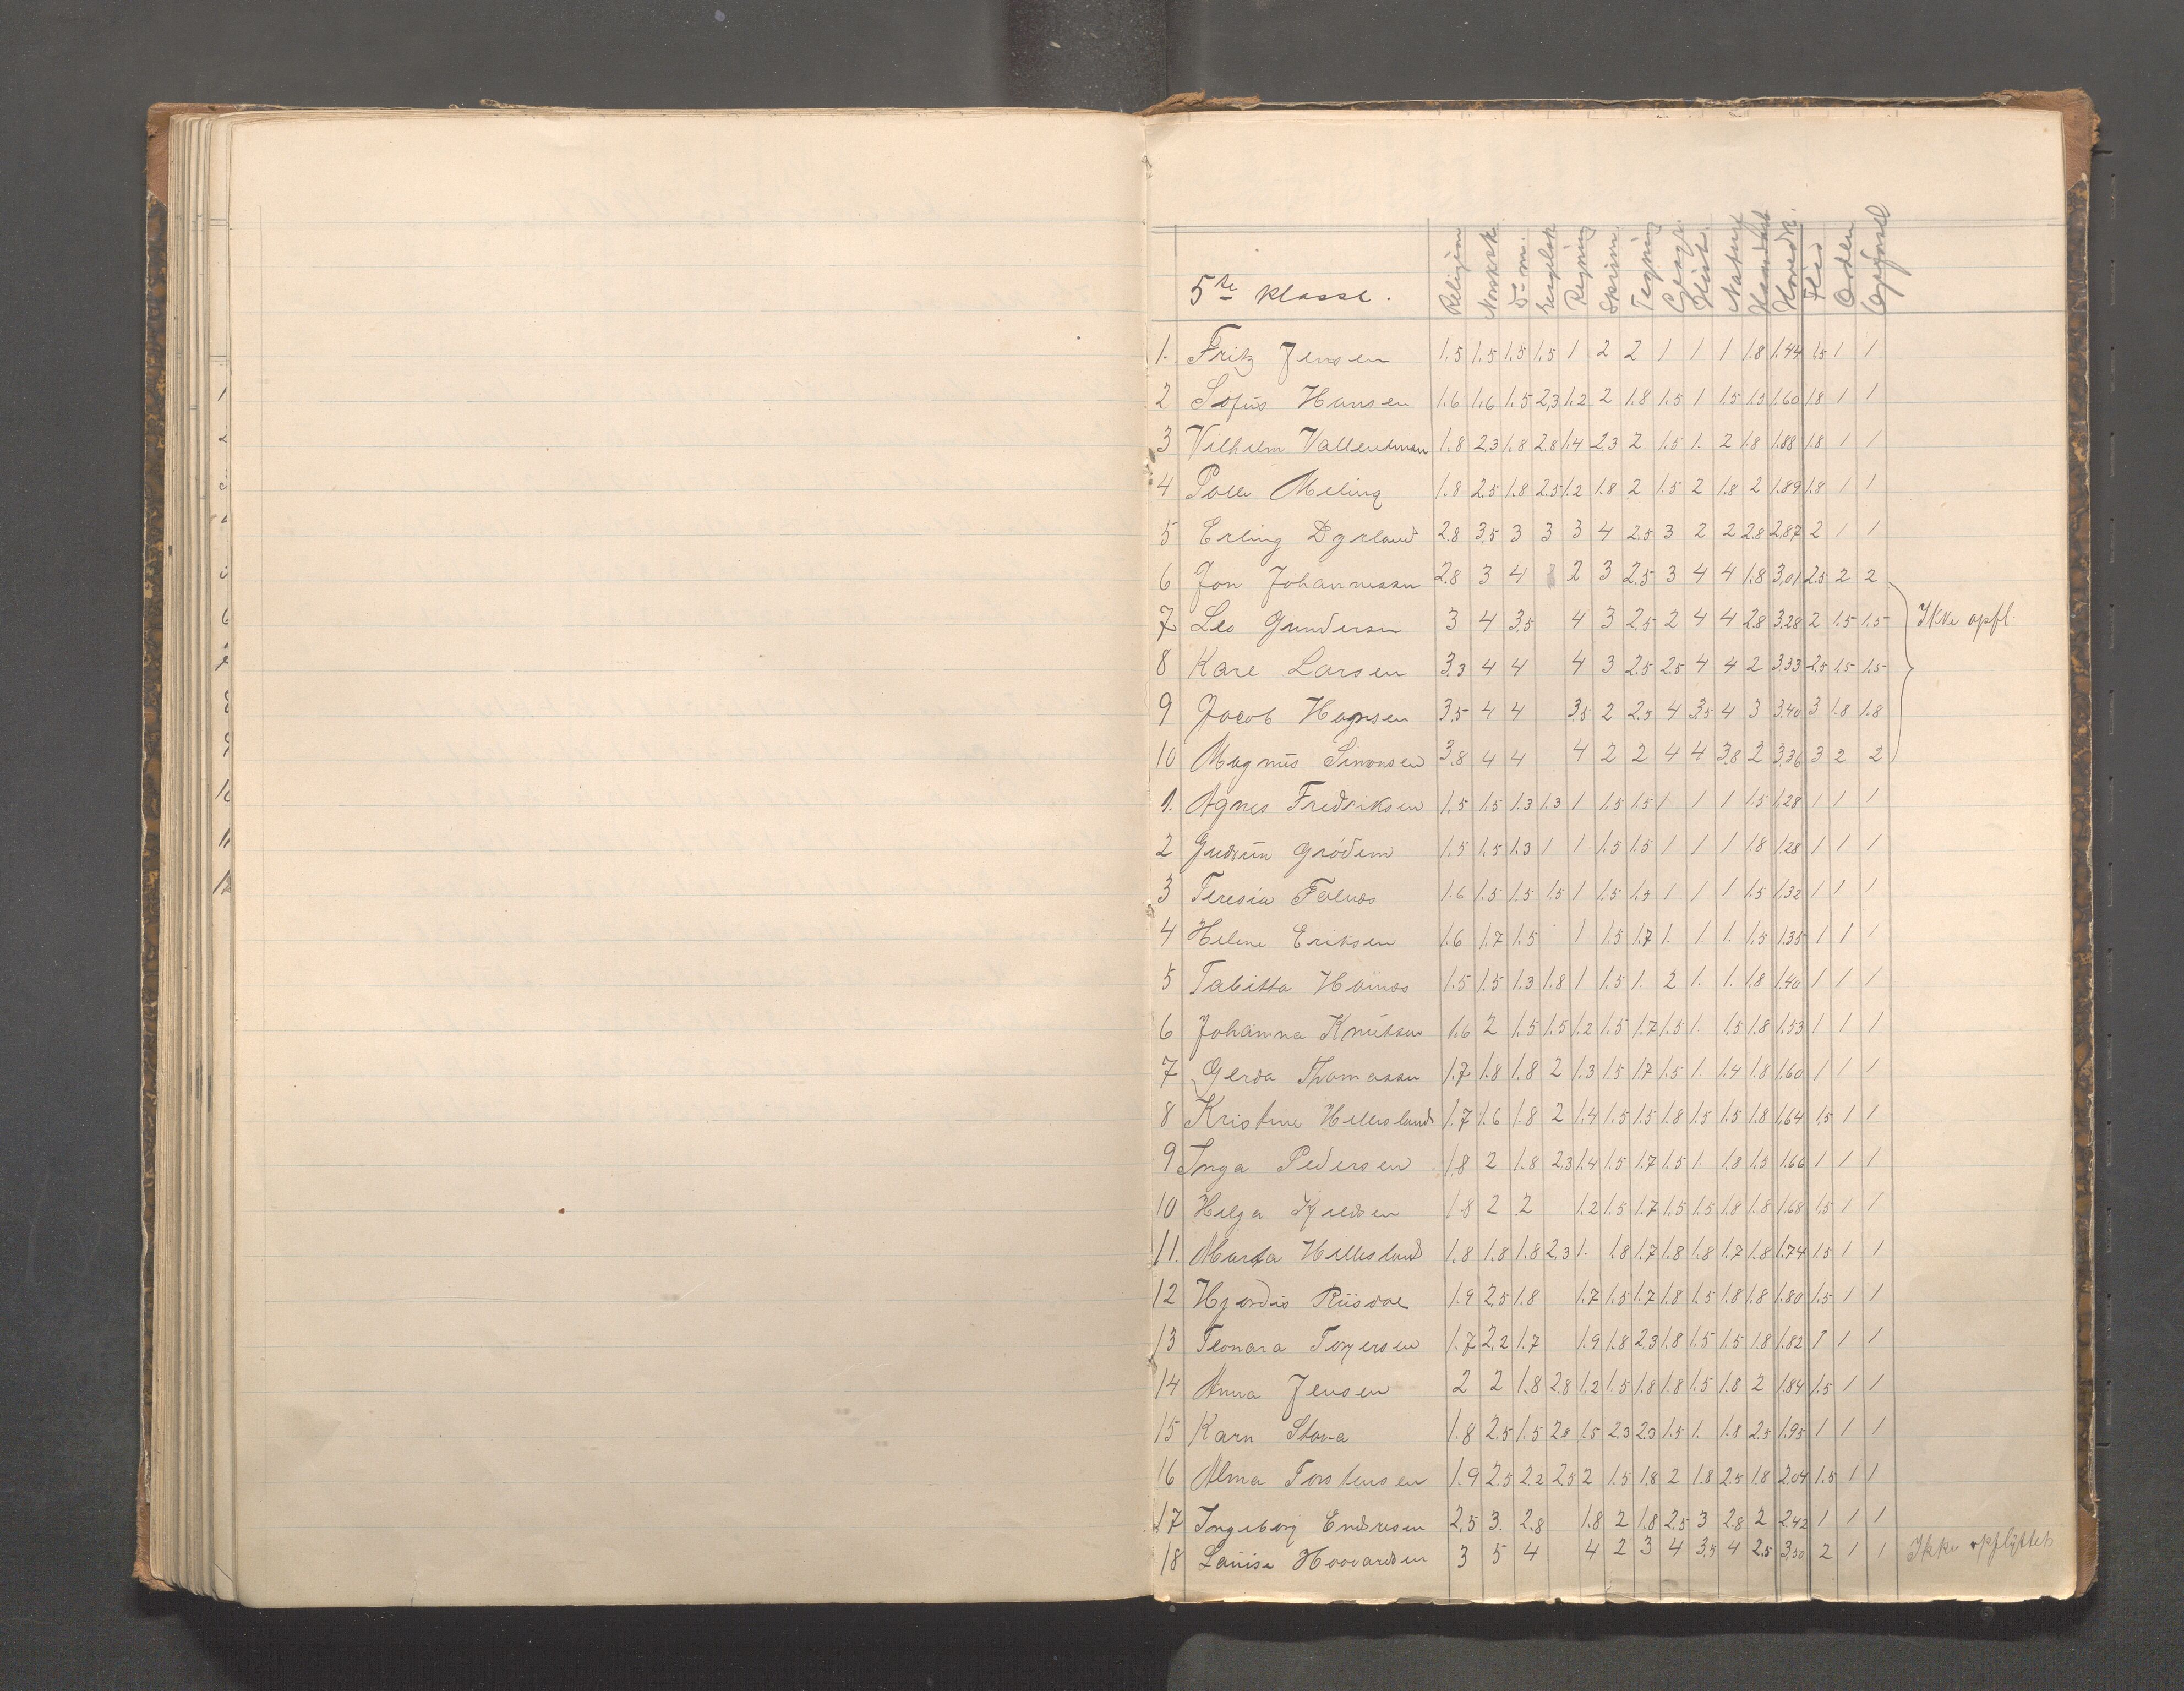 1
2
6
8
9
10
11
12
5te klasse. Religion Norsk sk. D- m. Engelsk Regning Skrivn. Tegning Geogr. Hist. Naturf. Haandarb. Hovedk. Flid Orden Opførsel
1. Fritz Jensen 1.5 1.5 1.5 1.5 1 2 2 1 1 1 1.8 1.44 1.5 1 1
2 Sofus Hansen 1.6 1.6 1.5 2,3 1.2 2 1.8 1.5 1 1.5 1.5 1.60 1.8 1 1
3 Vilhelm Vallentman 1.8 2.3 1.8 2.8 1.4 2.3 2 1.5 1. 2 1.8 1.88 1.8 1 1
4 Palle Meling 1.8 2.5 1.8 2.5 1.2 1.8 2 1.5 2 1.8 2 1.89 1.8 1 1
5 Erling Dyrland 2.8 3.5 3 3 3 4 2.5 3 2 2 2.8 2.87 2 1 1
6 Jon Johannessen 2.8 3 4 2 3 2.5 3 4 4 1.8 3,01 2.5 2 2
7 Leo Gundersen 3 4 3,5 4 3 2.5 2 4 4 2.8 3.28 2 1.5 1.5 Ikke opfl.
8 Kare Larsen 3.3 4 4 4 3 2.5 2.5 4 4 2 3.33 2.5 1.5 1.5
9 Jacob Hansen 3.5 4 4 3,5 2 2.5 4 3,5 4 3 3.40 3 1.8 1.8
10 Magnus Simonsen 3.8 4 4 4 2 2 4 4 3.8 2 3.36 3 2 2
1. Agnes Fredriksen 1.5 1.5 1.3 1.3 1 1.5 1.5 1 1 1 1.5 1.28 1 1 1
2 Gudrun Grödem 1.5 1.5 1.3 1 1 1.5 1.5 1 1 1 1.8 1.28 1 1 1
3 Teresia Falnes 1.6 1.5 1.5 1.5 1 1.5 1.5 1 1 1 1.5 1.32 1 1 1
4 Helene Eriksen 1.6 1.7 1.5 1 1.5 1.7 1. 1. 1. 1.5 1.35 1 1 1
5 Tabitta Haunes 1.5 1.5 1.3 1.8 1 1.5 1. 2 1. 1. 1.8 1.40 1 1 1
6 Johanna Knutsen 1.6 2 1.5 1.5 1.2 1.5 1.7 1.5 1. 1.5 1.8 1.53 1 1 1
7 Gerda Thomassen 1.7 1.8 1.8 2 1.3 1.5 1.7 1.5 1. 1.4 1.8 1.60 1 1 1
8 Kristine Hillesland 1.7 1.6 1.8 2 1.4 1.5 1.5 1.8 1.5 1.5 1.8 1.64 1.5 1 1
9 Inga Pedersen 1.8 2 1.8 2.3 1.4 1.5 1.7 1.5 1. 1.8 1.5 1.66 1 1 1
10 Helga Kjeldsen 1.8 2 2 1.2 1.5 1.7 1.5 1.5 1.8 1.8 1.68 1.5 1 1
11. Marta Hillesland 1.8 1.8 1.8 2,3 1. 1.8 1.7 1.8 1.8 1.7 1.8 1.74 1.5 1 1
12 Hjørdis Riisdal 1.9 2.5 1.8 1.7 1.5 1.7 1.8 1.5 1.8 1.8 1.80 1.5 1 1
13 Teonara Torgersen 1.7 2,2 1.7 1.9 1.8 2.3 1.8 1.5 1.5 1.8 1.82 1 1 1
14 Anna Jensen 2 2 1.8 2.8 1.2 1.5 1.8 1.8 1.5 1.8 2 1.84 1.5 1 1
15 Karn Stava 1.8 2.5 1.5 2.8 1.5 2.3 2.3 1.5 1. 1.8 2.5 1.95 1 1 1
16 Alma Torstensen 1.9 2.5 2.2 2.5 2 1.5 1.8 2 1.8 2.5 1.8 2.04 1.5 1 1
17 Ingeborg Endresen 2,5 3. 2.8 1.8 2 1.8 2.5 3 2.8 2 2.42 1 1 1
18 Lauise Hoovardsen 3 5 4 4 2 3 4 3,5 4 2.5 3,50 2 1 1 Ikke opflyttet